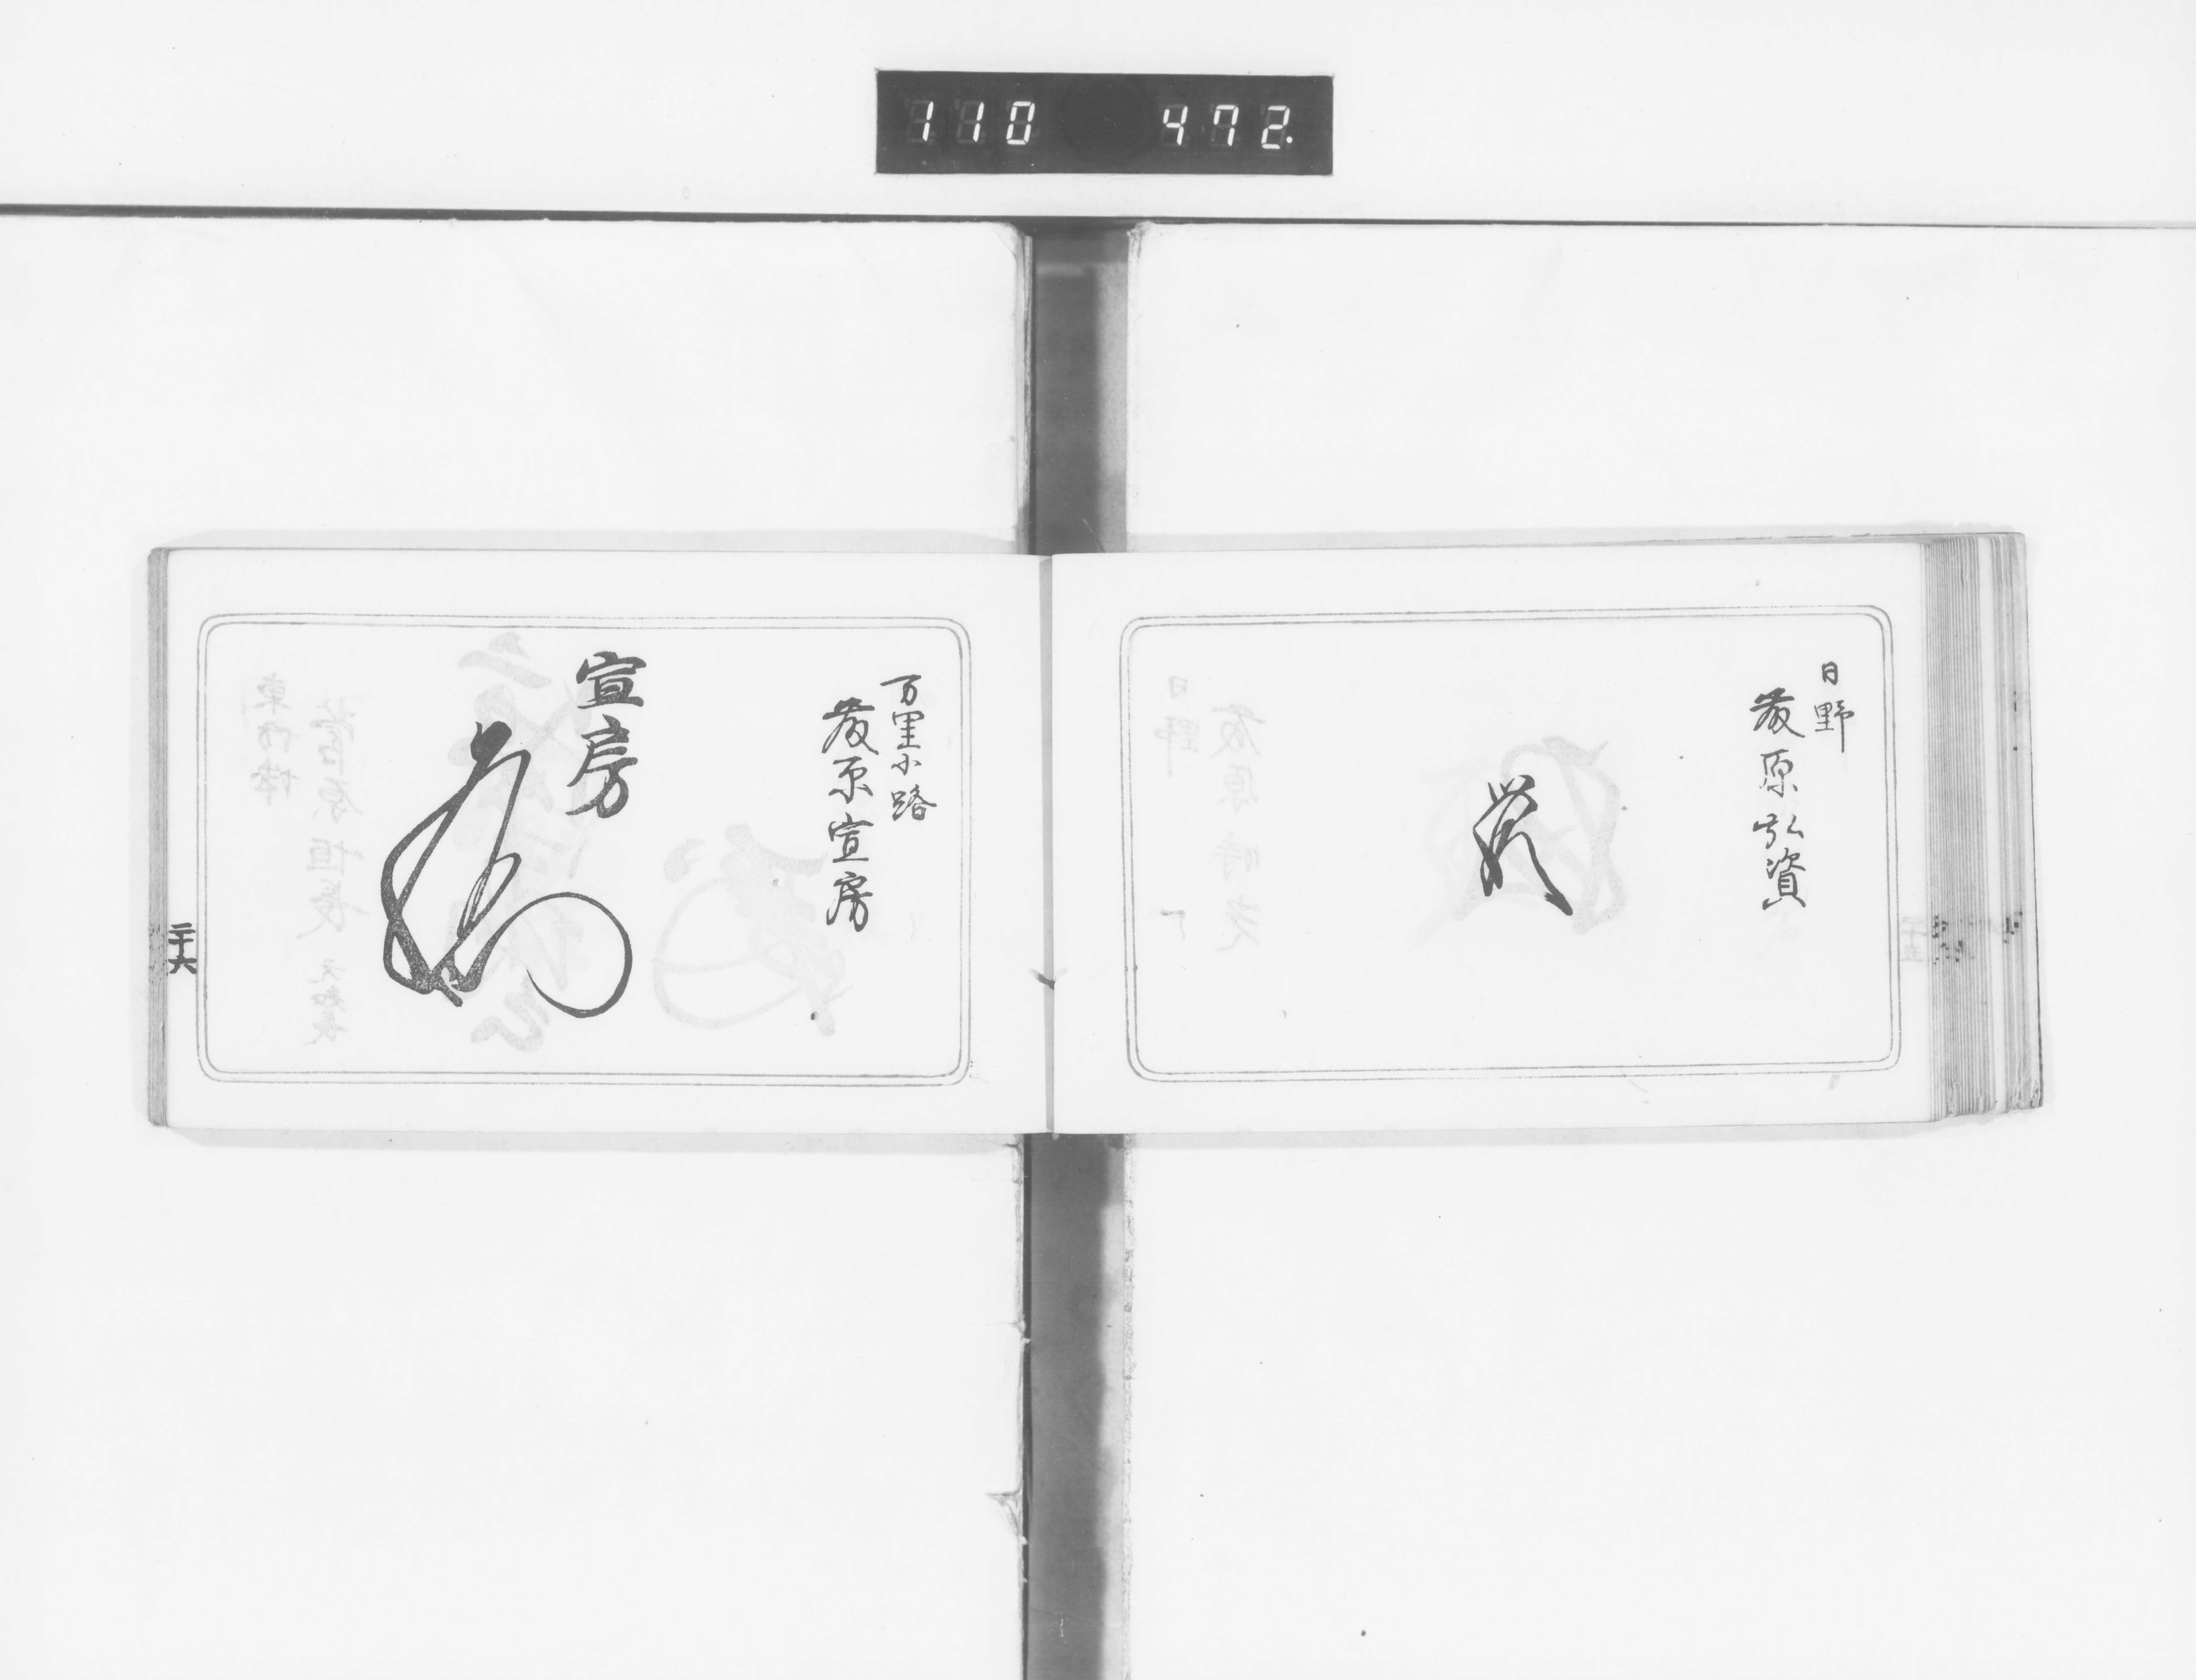 110 472.
日野
藤原弘資
万里小路
藤原宣房
宣房
二十六